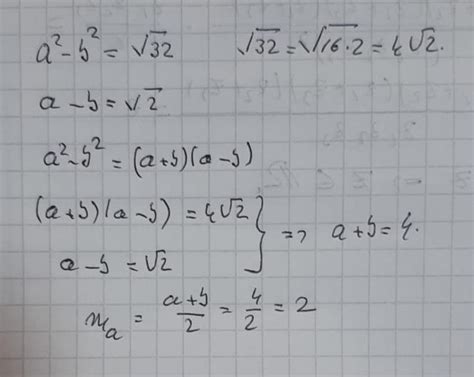 a² - b² = √32    √32 = √16·2 = 4√2.
a - b = √2.
a² - b² = (a+b)(a-b)
(a+b)(a-b) = 4√2 } => a+b = 4.
a - b = √2
mₐ = (a+b)/2 = 4/2 = 2